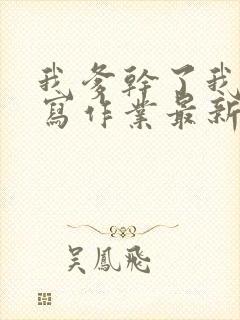 我爹幹了我
寫作業最新
吳鳳飛